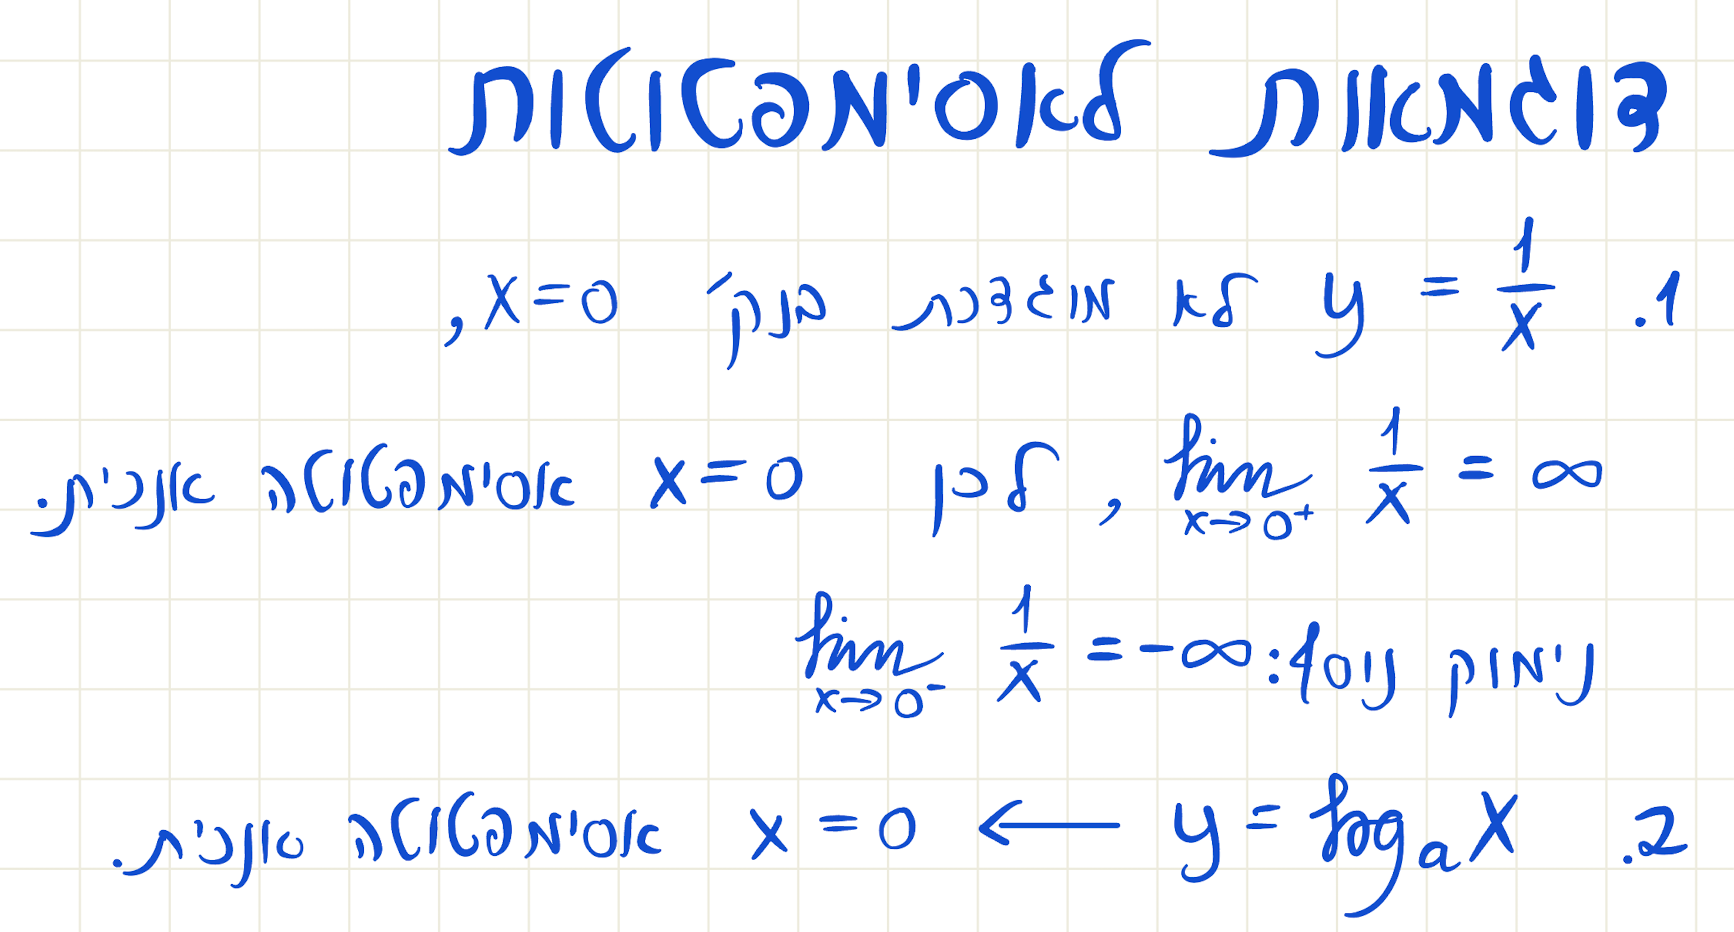 דוגמאות לאסימפטוטות
1. y = 1/x לא מוגדרת בנק' x=0,
lim x→0⁺ 1/x = ∞, לכן x=0 אסימפטוטה אנכית.
נימוק נוסף: lim x→0⁻ 1/x = -∞
2. y = logₐ x ← x = 0 אסימפטוטה אנכית.